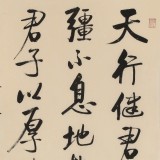 天行健君
彊不息地
君子以厚